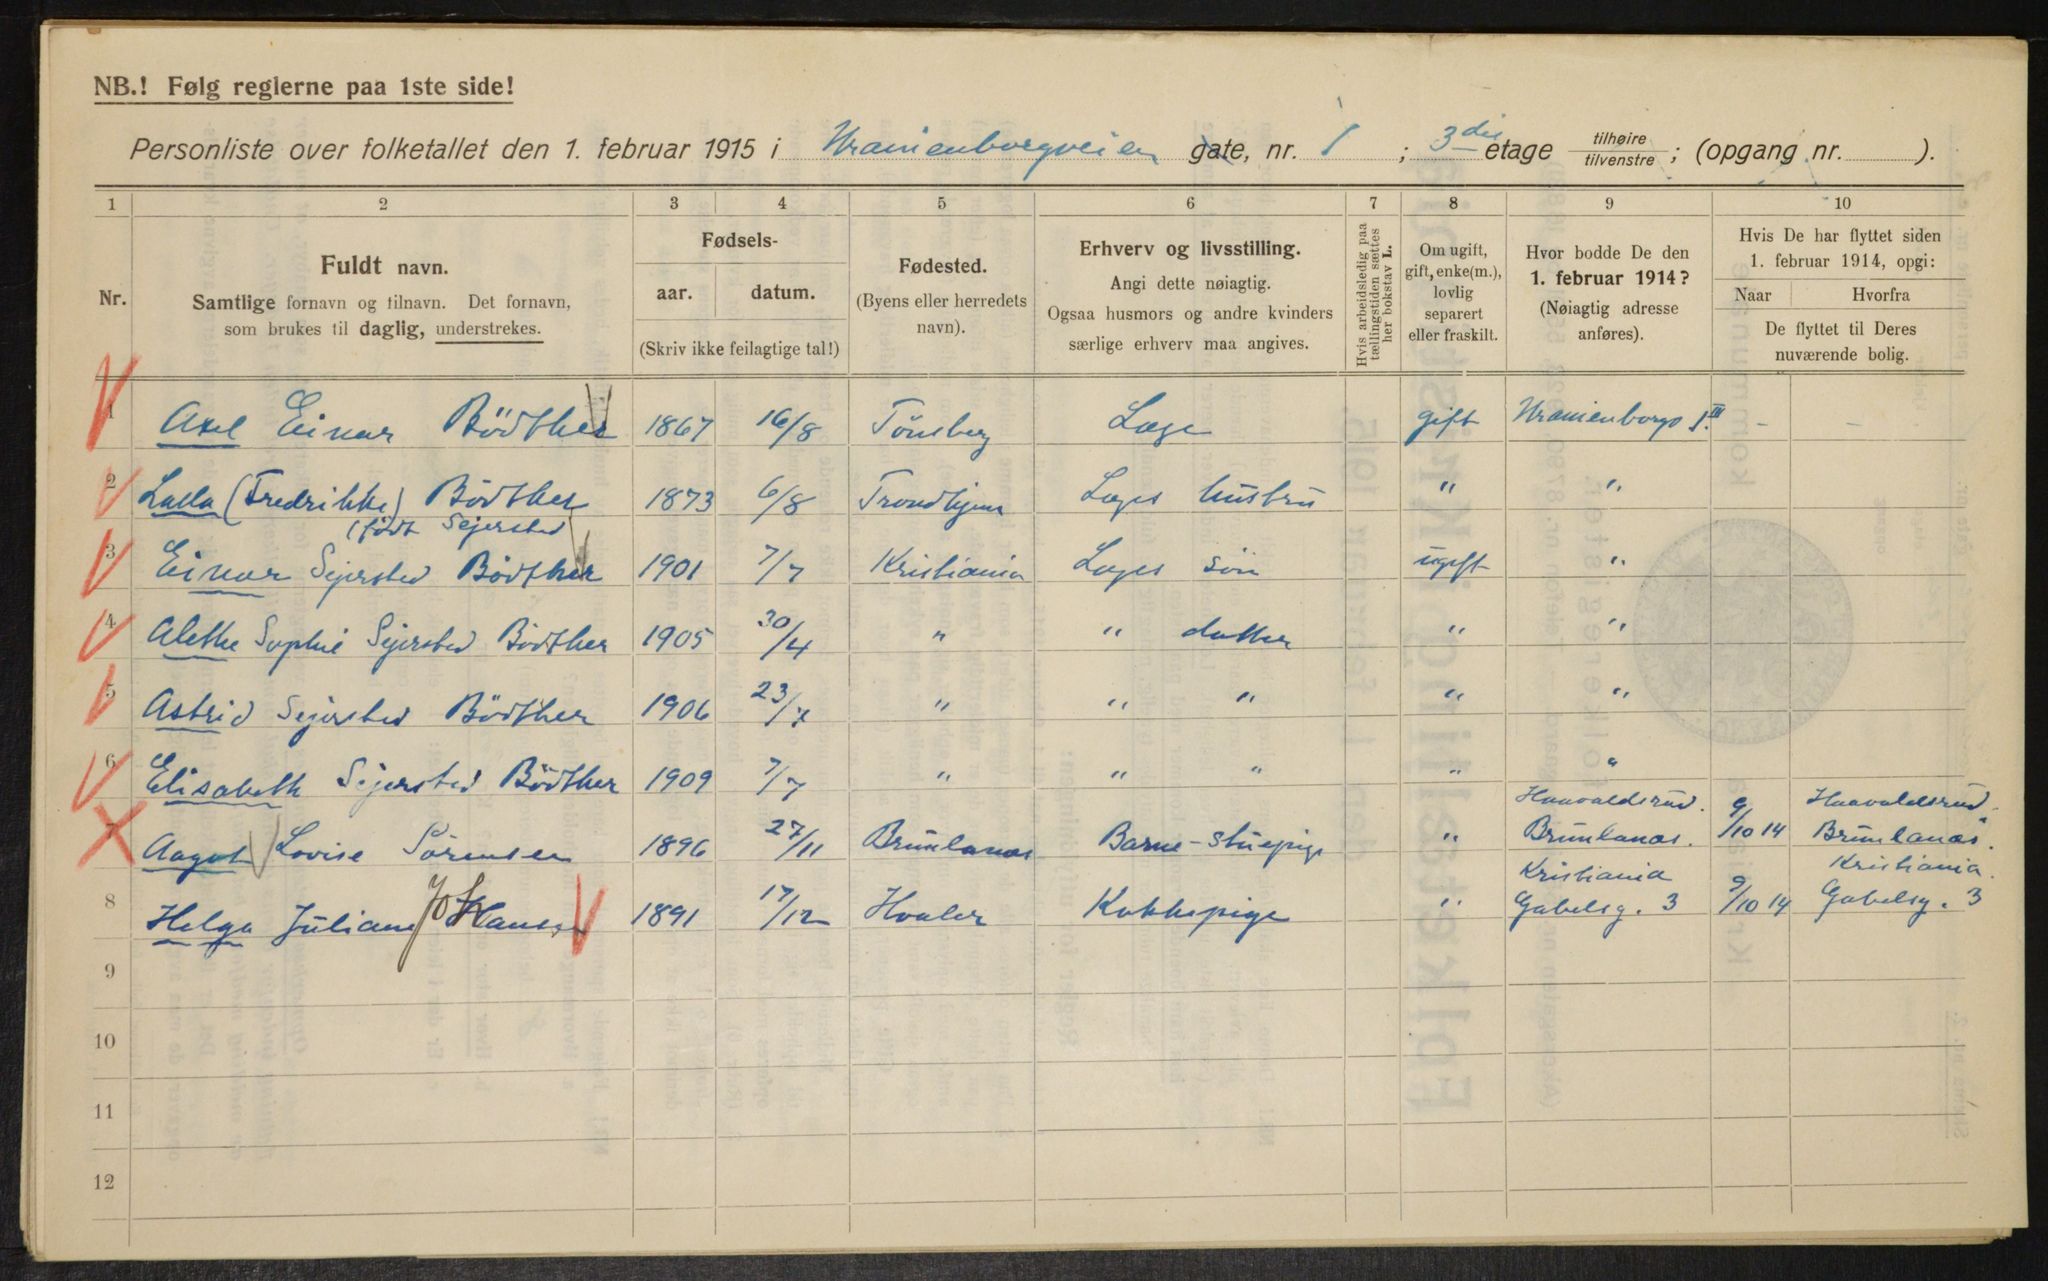 NB.! Følg reglerne paa 1ste side!
Personliste over folketallet den 1. februar 1915 i Uranienborgveien gate, nr. 1 ; 3die etage tilhøire / tilvenstre ; (opgang nr. ).
1 2 3 4 5 6 7 8 9 10
Nr.
Fuldt navn.
Samtlige fornavn og tilnavn. Det fornavn,
som brukes til daglig, understrekes.
Fødsels-
aar. datum.
(Skriv ikke feilagtige tal!)
Fødested.
(Byens eller herredets
navn).
Erhverv og livsstilling.
Angi dette nøiagtig.
Ogsaa husmors og andre kvinders
særlige erhverv maa angives.
Hvis arbeidsledig paa
tællingstiden sættes
her bokstav L.
Om ugift,
gift, enke(m.),
lovlig
separert
eller fraskilt.
Hvor bodde De den
1. februar 1914?
(Nøiagtig adresse
anføres).
Hvis De har flyttet siden
1. februar 1914, opgi:
Naar Hvorfra
De flyttet til Deres
nuværende bolig.
1 Axel Einar Bödther 1867 16/8 Tönsberg Læge gift Uranienborgv 1. III - -
2 Lalla (Fredrikke) Bödther 1873 6/8 Trondhjem Læges hustru " "
(født Sejersted
3 Einar Sejersted Bödther 1901 7/7 Kristiania Læges sön ugift "
4 Alethe Sophie Sejersted Bödther 1905 30/4 " " datter " "
5 Astrid Sejersted Bödther 1906 23/7 " " " " "
6 Elisabeth Sejersted Bödther 1909 7/7 " " " " "
Haavaldsrud. Haavaldsrud.
7 Aagot Lovise Sörensen 1896 27/11 Brunlanæs Barne-stuepige " Brunlanæs. 9/10 14 Brunlanæs.
Kristiania Kristiania.
8 Helga Juliane Johansen 1891 17/12 Hvaler Kokkepige " Gabelsg. 3 9/10 14 Gabelsg. 3
9
10
11
12